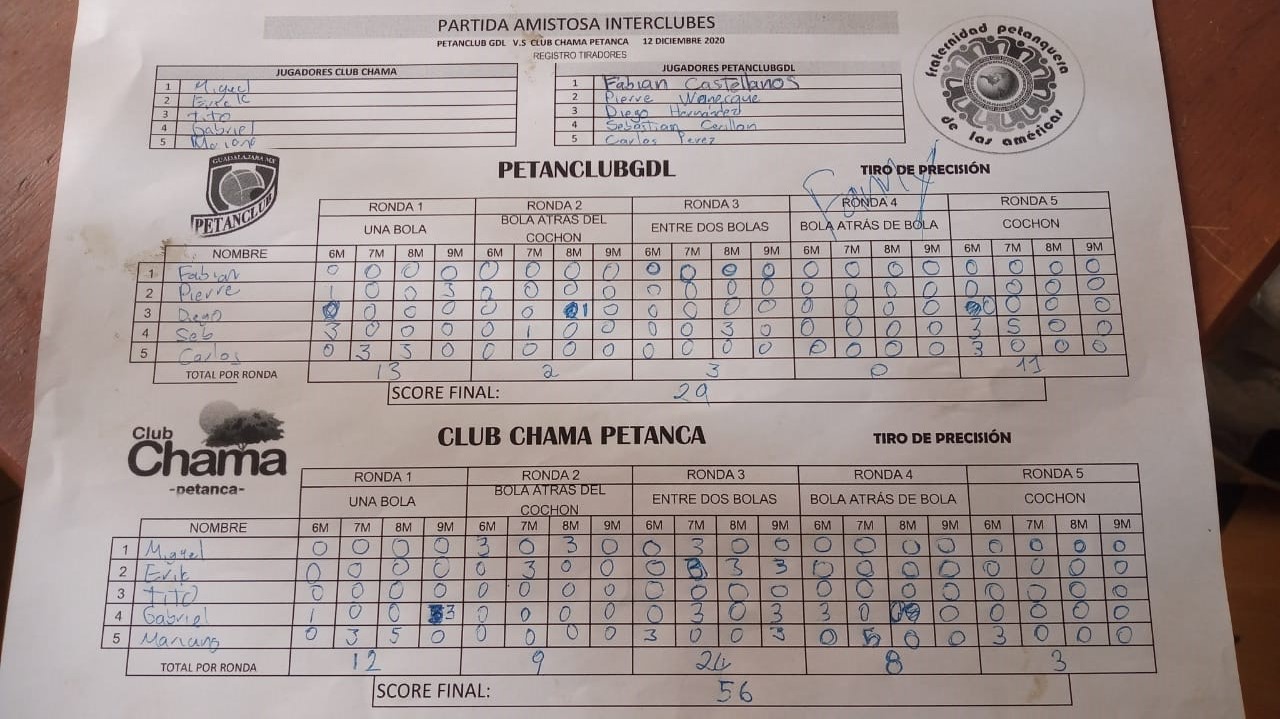 PARTIDA AMISTOSA INTERCLUBES
PETANCLUB GDL V.S CLUB CHAMA PETANCA 12 DICIEMBRE 2020
REGISTRO TIRADORES
JUGADORES CLUB CHAMA
1 Miguel
2
3 Tito
4 Gabriel
5
JUGADORES PETANCLUBGDL
1 Fabian Castellanos
2 Pierre
3 Diego Hernández
4 Sebastian
5 Carlos Perez
fraternidad petanquera de las américas
GUADALAJARA MX
PETANCLUB
PETANCLUBGDL
TIRO DE PRECISIÓN
RONDA 1 RONDA 2 RONDA 3 RONDA 4 RONDA 5
UNA BOLA BOLA ATRÁS DEL COCHON ENTRE DOS BOLAS BOLA ATRÁS DE BOLA COCHON
NOMBRE 6M 7M 8M 9M 6M 7M 8M 9M 6M 7M 8M 9M 6M 7M 8M 9M 6M 7M 8M 9M
1 Fabian 0 0 0 0 0 0 0 0 0 0 0 0 0 0 0 0 0 0 0 0
2 Pierre 1 0 0 3 0 0 0 0 0 0 0 0 0 0 0 0 0 0 0
3 Diego 0 0 0 0 0 0 1 0 0 0 0 0 0 0 0 0 0 0 0 0
4 Seb 3 0 0 0 0 1 0 0 0 0 3 0 0 0 0 0 3 5 0 0
5 Carlos 0 3 3 0 0 0 0 0 0 0 0 0 0 0 0 0 3 0 0 0
TOTAL POR RONDA 13 2 3 0 11
SCORE FINAL: 29
Club
Chama
-petanca-
CLUB CHAMA PETANCA
TIRO DE PRECISIÓN
RONDA 1 RONDA 2 RONDA 3 RONDA 4 RONDA 5
UNA BOLA BOLA ATRÁS DEL COCHON ENTRE DOS BOLAS BOLA ATRÁS DE BOLA COCHON
NOMBRE 6M 7M 8M 9M 6M 7M 8M 9M 6M 7M 8M 9M 6M 7M 8M 9M 6M 7M 8M 9M
1 Miguel 0 0 0 0 3 0 3 0 0 3 0 0 0 0 0 0 0 0 0 0
2 Erik 0 0 0 0 0 3 0 0 0 3 3 3 0 0 0 0 0 0 0 0
3 Tito 0 0 0 0 0 0 0 0 0 0 0 0 0 0 0 0 0 0 0 0
4 Gabriel 1 0 0 3 0 0 0 0 0 3 0 3 3 0 0 0 0 0 0
5 Mariano 0 3 5 0 0 0 0 0 3 0 0 3 0 5 0 0 3 0 0 0
TOTAL POR RONDA 12 9 24 8 3
SCORE FINAL: 56